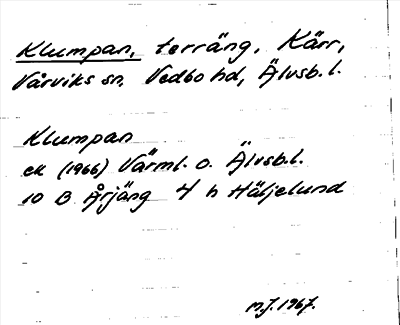 Klumpan, terräng, Kärr,
Vårviks sn, Vedbo hd, Älvsb. l.
Klumpan
ek (1966) Värml. o. Älvsb. l.
10 B Årjäng 4 h Häljelund
M.J. 1967.